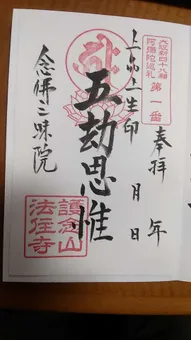 大坂新四十八願
阿弥陀巡礼
第一番
奉拝 年 月 日
上品上生印
五劫思惟
念佛三昧院
護念山
法住寺